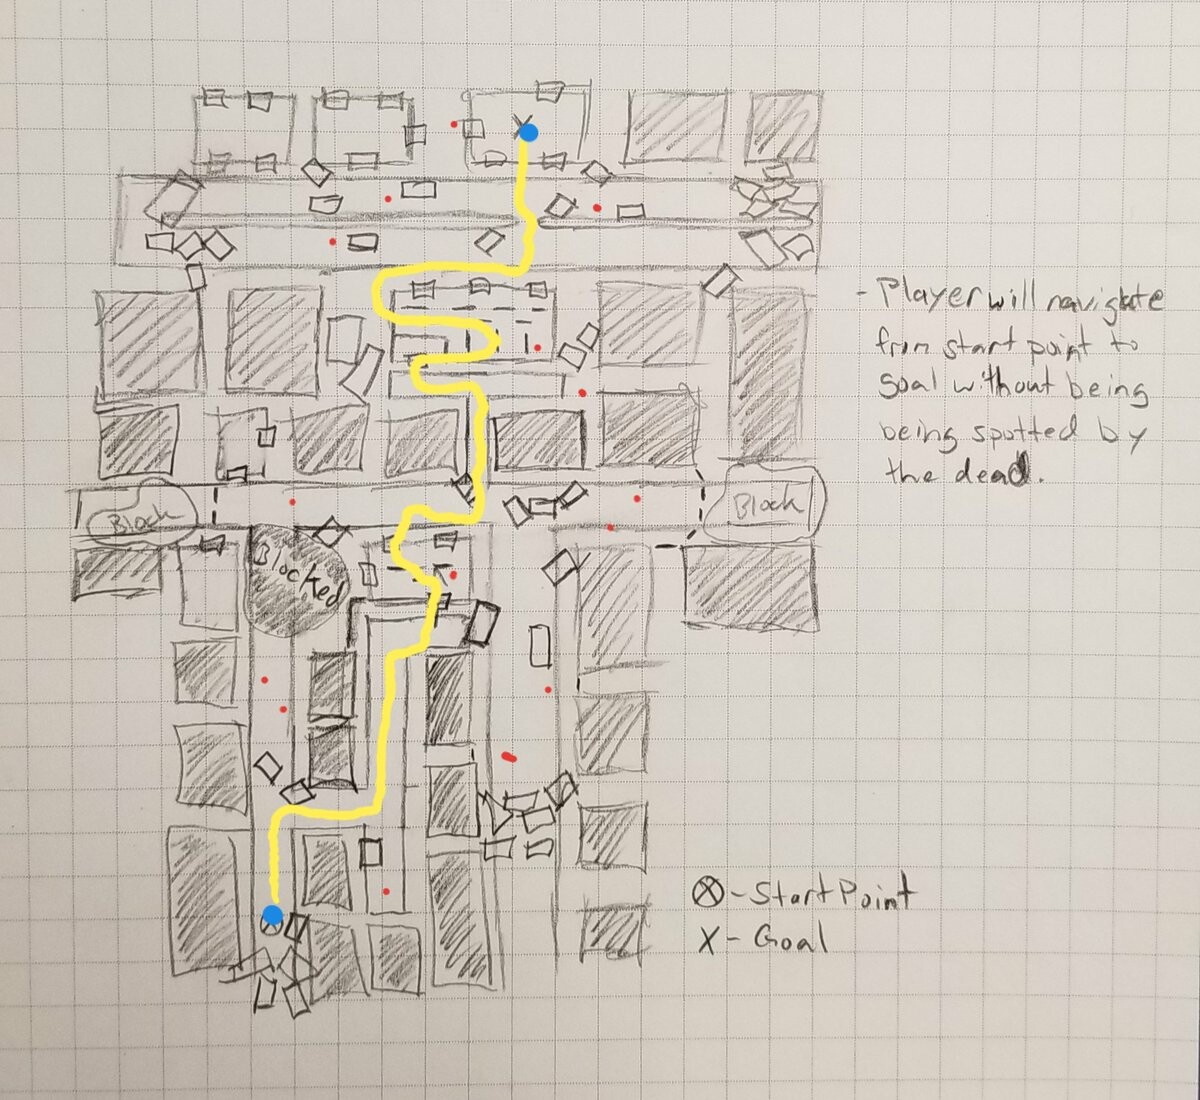 - Player will navigate
from start point to
goal without being
being spotted by
the dead.
Block
Block
Blocked
⊗ - Start Point
X - Goal